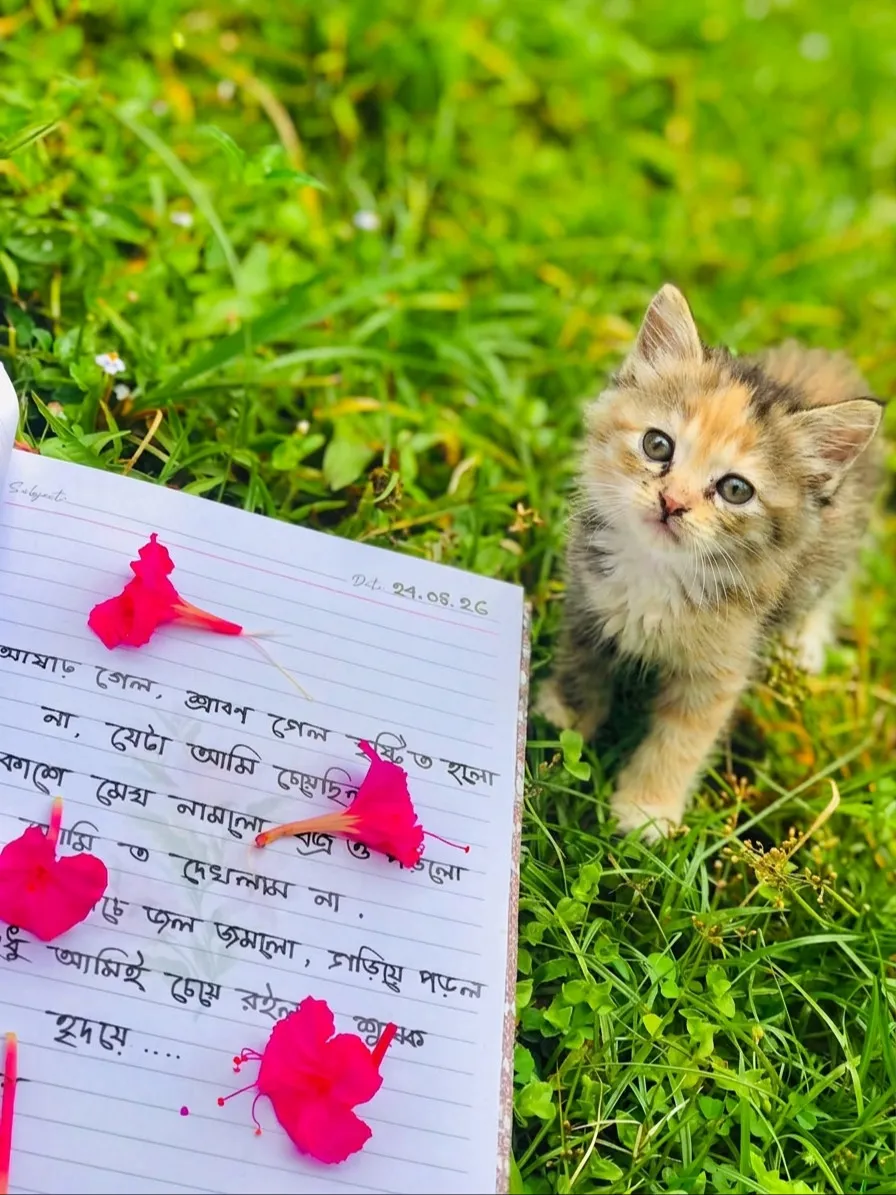 Subject
Date 24.08.26
আষাঢ় গেল, শ্রাবণ গেল ত হলো
না, যেটা আমি চেয়েছি
কাশে মেঘ নামলো বজ্র ও
ত দেখলাম না.
জল জমলো, গড়িয়ে পড়ল
আমিই চেয়ে
হৃদয়ে ....